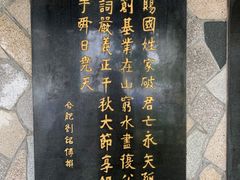 賜國姓家破君亡永矢
創基業在山窮水盡復
詞嚴義正千秋大節享
于舜日堯天
合肥劉銘傳撰